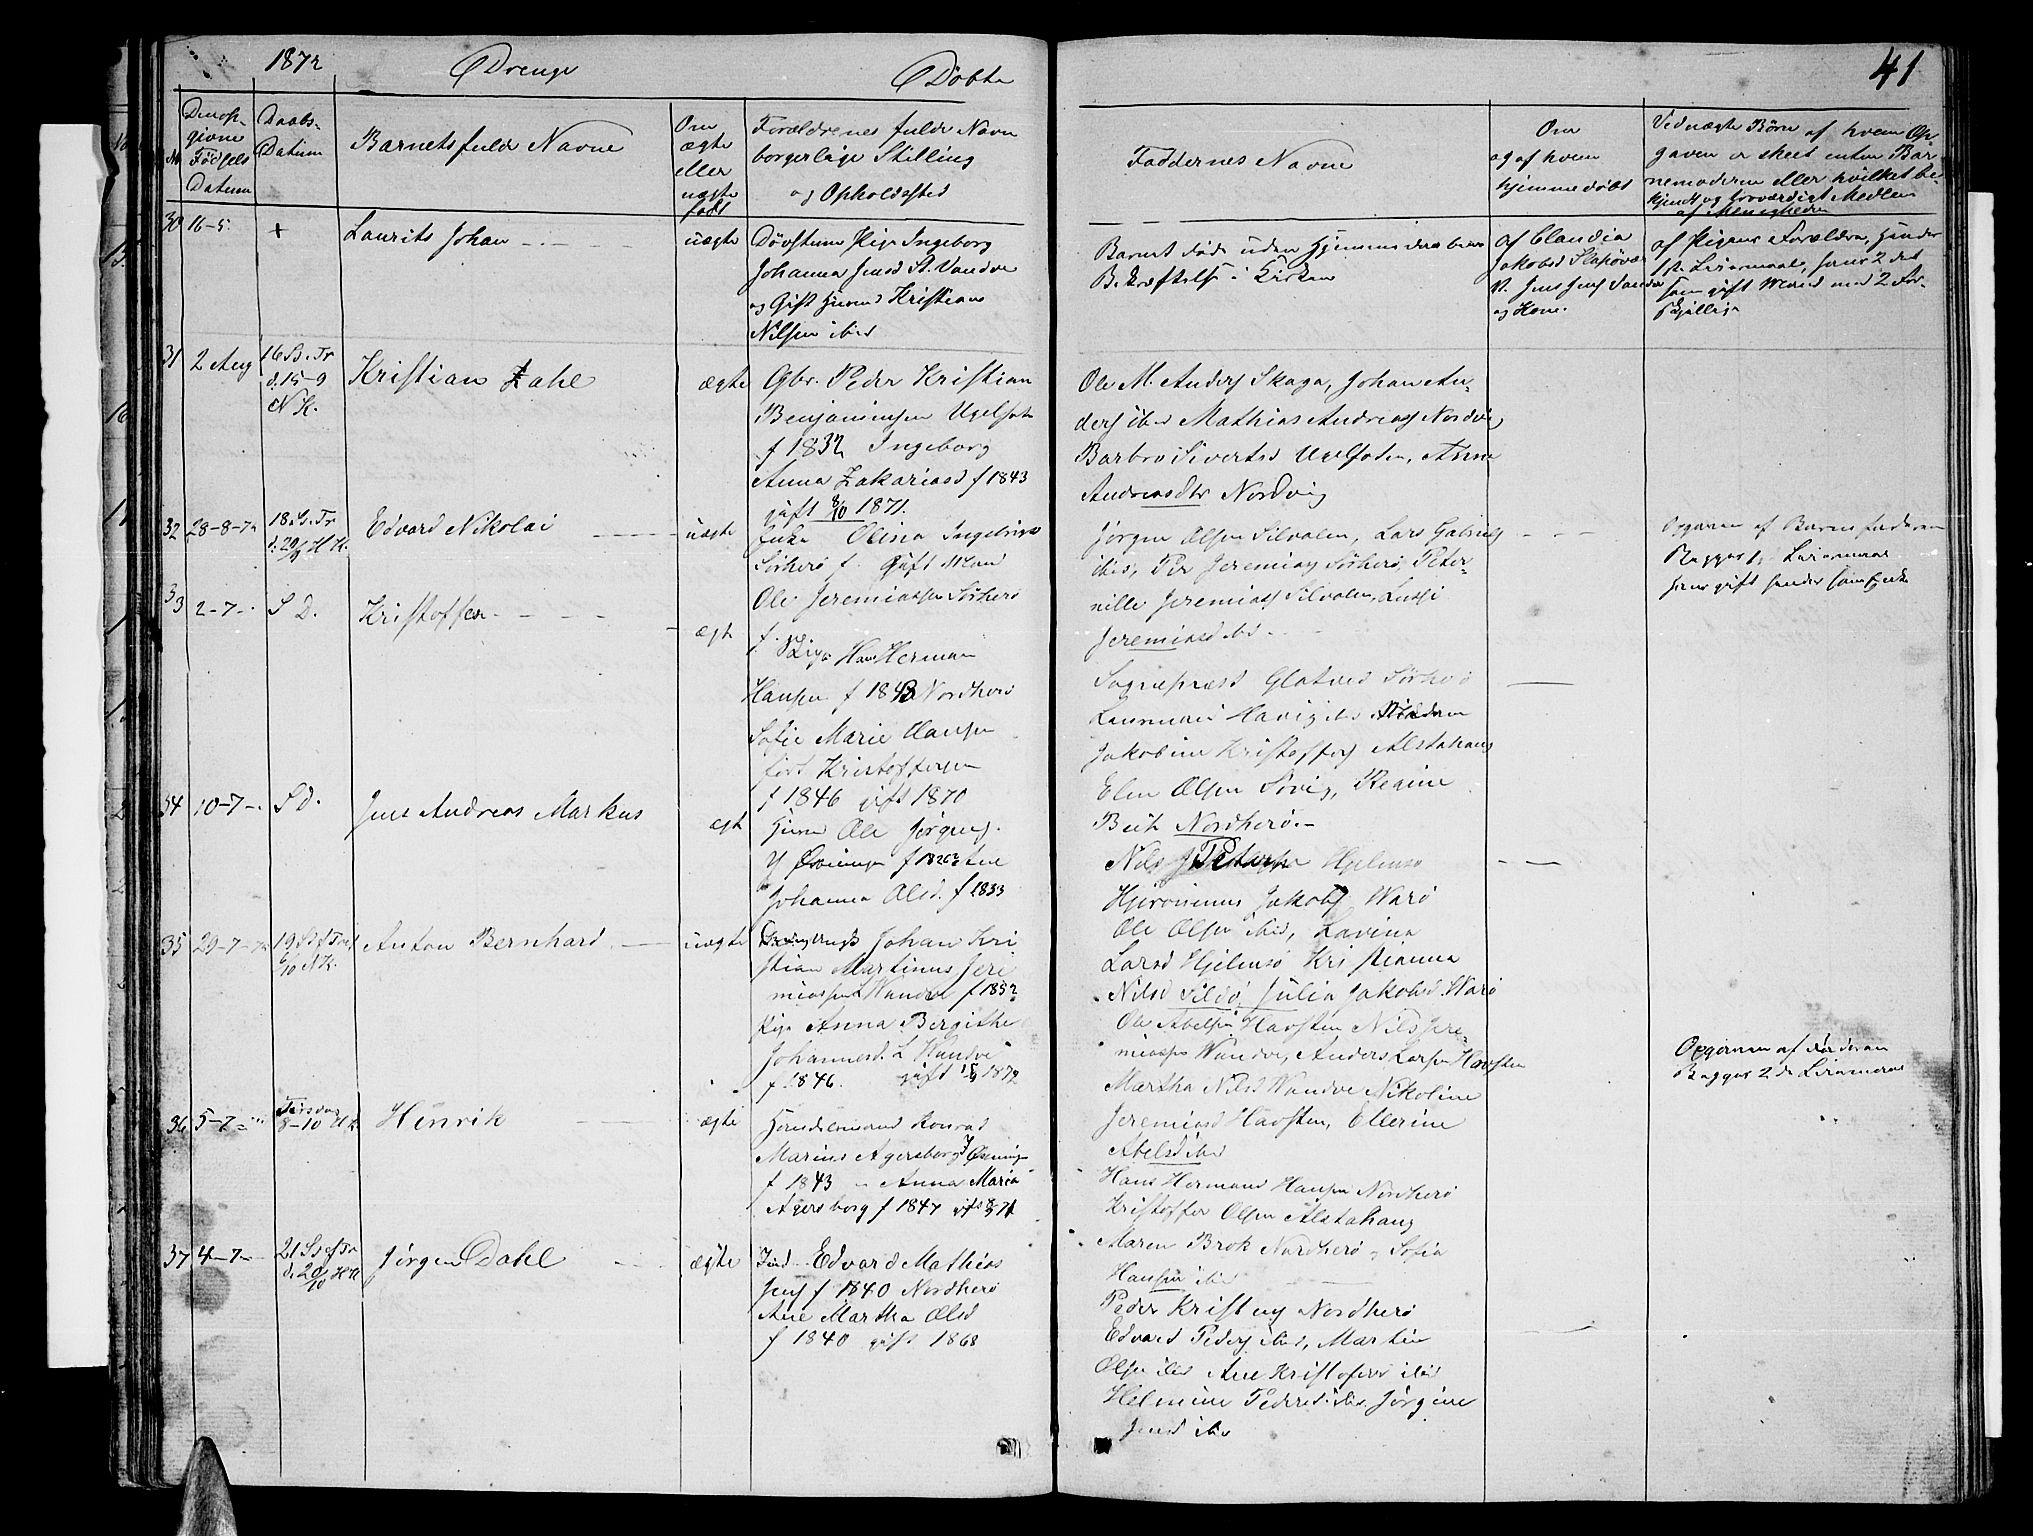 1872 Drenge Døbte
41
No
Den op-
givne
Fødsels
Datum
Daabs-
Datum
Barnets fulde Navne
Om
ægte
eller
uægte
født
Forældrenes fulde Navn
borgerlige Stilling
og Opholdssted
Faddernes Navne
Om
og af hvem
hjemmedøbt
Ved uægte Børn af hvem Op-
gaven er skeet enten Bar-
nemoderen eller hvilket be-
kjendt og troværdigt Medlem
af Menigheden
30 16-5 + Laurits Johan uægte
Døvstum Pige Ingeborg
Johanna Jensd St. Vandve
og Gift Huusmd Kristian
Nilsen ibid
Barnet døde uden Hjemmedaabens
Bekræftelse i Kirken
af Claudia
Jakobsd
Jens Jens Vandve
og Kone.
af Pigens Forældre, Hendes
1ste Leiermaal, hans 2det
som gift Mand med 2 For-
skjellige
31 2 Aug 16 S. e. Tr
d. 15-9
N K.
Kristian Zahl ægte
Gbr. Peder Kristian
Benjaminsen Ugelsten
f 1832 Ingeborg
Anna Zakariasd f 1843
gift 8/10 1871.
Ole M. Anders Skaga, Johan An-
ders ibid Mathias Andreas Nordvig,
Barbro Sivertsd Uglsten, Anne
Andreasdtr Nordvig
32 28-8-72 18 S. e. Tr
d. 29/9 H K.
Edvard Nikolai uægte
Enke Olina Ingebrigts
Sørherø f. Gift Mand
Ole Jeremiassen Sørherø
f.
Jørgen Olsen Silvalen, Lars Gabriels
ibid, Per Jeremias Sørherø, Peter-
nille Jeremiass Silvalen, Lussi
Jeremiasd ibd
Opgaven af Barnefaderen
Begges 1. Leiermaal
hans gift hendes som Enke
33 2-7- S D. Kristoffer ægte
Hans Herman
Hansen f 1843 Nordherø
Sofie Marie Hansen
født Kristoffersen
f 1846 gift 1870
Sognepræst Glatved Sørherø
Jakobine Kristoffers Alstahaug
Elen Olsen Søvig, Regine
Beck Nordherø.-
34 10-7- S d. Jens Andreas Markus ægt
Huusm Ole Jørgens.
Y Øxningen f 1826 Ane
Johanna Olsd. f 1833
Nils Petersen Hjelmsø
Hjeronimus Jakobs Warø
Ole Olsen ibid, Lavina
Larsd Hjelmsø Kristianna
Nilsd Sildø, Julia Jakobsd Warø
35 29-7-72 19 S ef Tref
6/10 N K.
Anton Bernhard uægte
Johan Kri
stian Martinus Jere
miassen L Wandve f 1852
Pige Anna Bergithe
Johannesd. L Wandve
f 1846. gift 15/9 1872
Ole Abelsen Havsten Nils Jere-
miassen Wandve, Anders Larsen Havsten
Martha Nilsd Wandve Nikoline
Jeremiasd Havsten, Ellerine
Abelsd ibid
Opgaven af Faderen
Begges 2de Leiermaal
36 5-7- Tirsdag
8-10 H K.
Henrik ægte
Handelsmand Konrad
Marius Agersborg Y Øxningen
f 1843 Anna Maria
Agersborg f 1847
Hans Hermand Hansen Nordherø
Kristoffer Olsen Alstahaug
Maren Brok Nordherø Sofia
Hansen ibid
37 4-7- 21 S ef Tr
d. 20/10 H K
Jørgen Dahl ægte
Ind. Edvard Mathias
Jens f 1840 Nordherø
Ane Martha Olsd
f 1840 gift 1868
Peder Kristens Nordherø
Edvard Peders ibid, Martin
Olsen ibid Ane Kristofersd ibid
Helmine Pedersd ibid, Jørgine
Jensd ibid